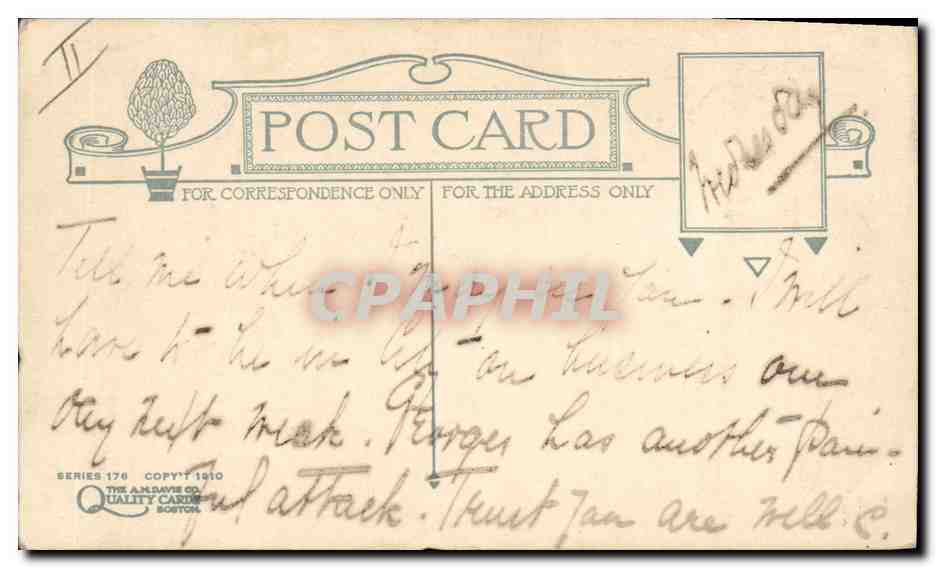 II
POST CARD
Wednesday
FOR CORRESPONDENCE ONLY
FOR THE ADDRESS ONLY
Tell me when I may see you. I will
have to be in city on business one
day next week. Georges has another pain-
ful attack. Trust you are well. C.
CPAPHIL
SERIES 176 COPY'T 1910
THE A.M. DAVIS CO.
QUALITY CARDS
BOSTON